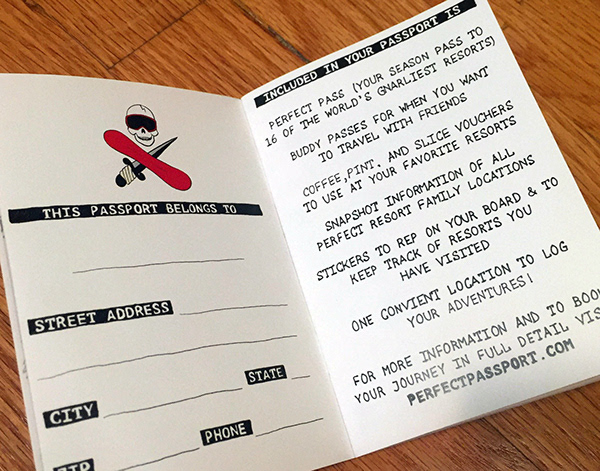 THIS PASSPORT BELONGS TO
STREET ADDRESS
STATE
CITY
PHONE
ZIP
INCLUDED IN YOUR PASSPORT IS
PERFECT PASS (YOUR SEASON PASS TO
16 OF THE WORLD'S GNARLIEST RESORTS)
BUDDY PASSES FOR WHEN YOU WANT
TO TRAVEL WITH FRIENDS
COFFEE,PINT, AND SLICE VOUCHERS
TO USE AT YOUR FAVORITE RESORTS
SNAPSHOT INFORMATION OF ALL
PERFECT RESORT FAMILY LOCATIONS
STICKERS TO REP ON YOUR BOARD & TO
KEEP TRACK OF RESORTS YOU
HAVE VISITED
ONE CONVIENT LOCATION TO LOG
YOUR ADVENTURES!
FOR MORE INFORMATION AND TO BOO
YOUR JOURNEY IN FULL DETAIL VIS
PERFECTPASSPORT.COM